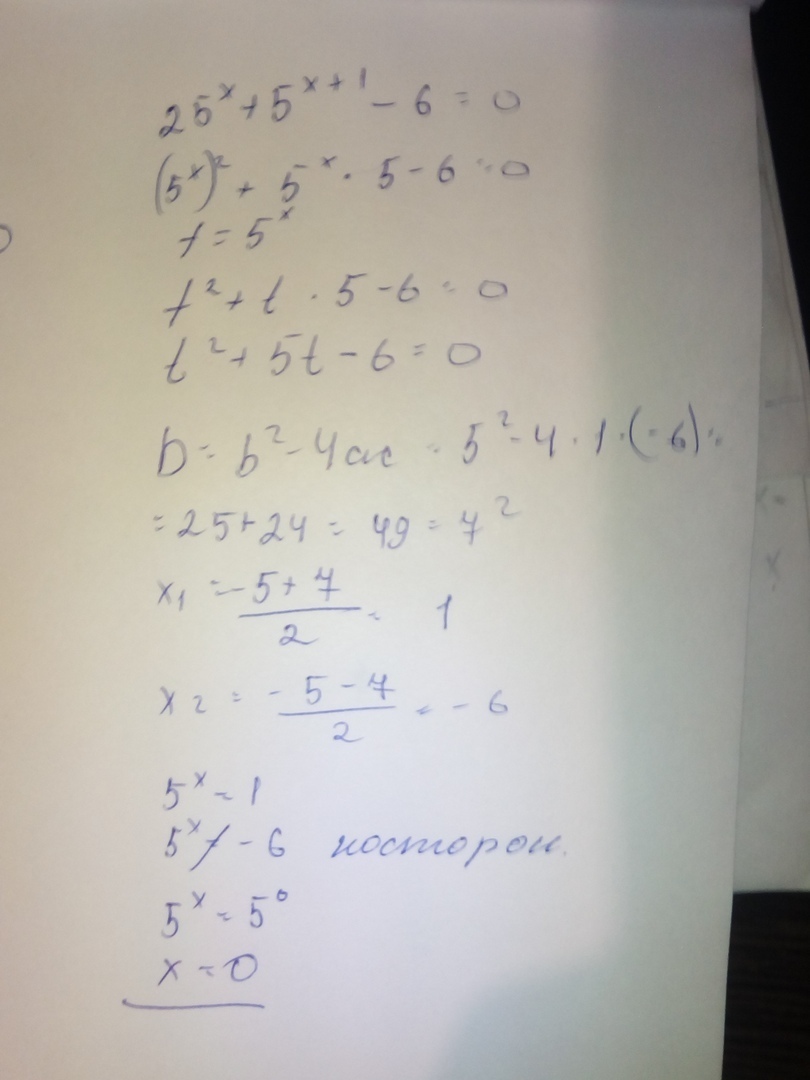 25^x + 5^(x+1) - 6 = 0
(5^x)^2 + 5^x · 5 - 6 = 0
t = 5^x
t^2 + t · 5 - 6 = 0
t^2 + 5t - 6 = 0
D = b^2 - 4ac = 5^2 - 4 · 1 · (-6) =
= 25 + 24 = 49 = 7^2
x1 = (-5 + 7)/2 = 1
x2 = (-5 - 7)/2 = -6
5^x = 1
5^x ≠ -6 посторон.
5^x = 5^0
x = 0